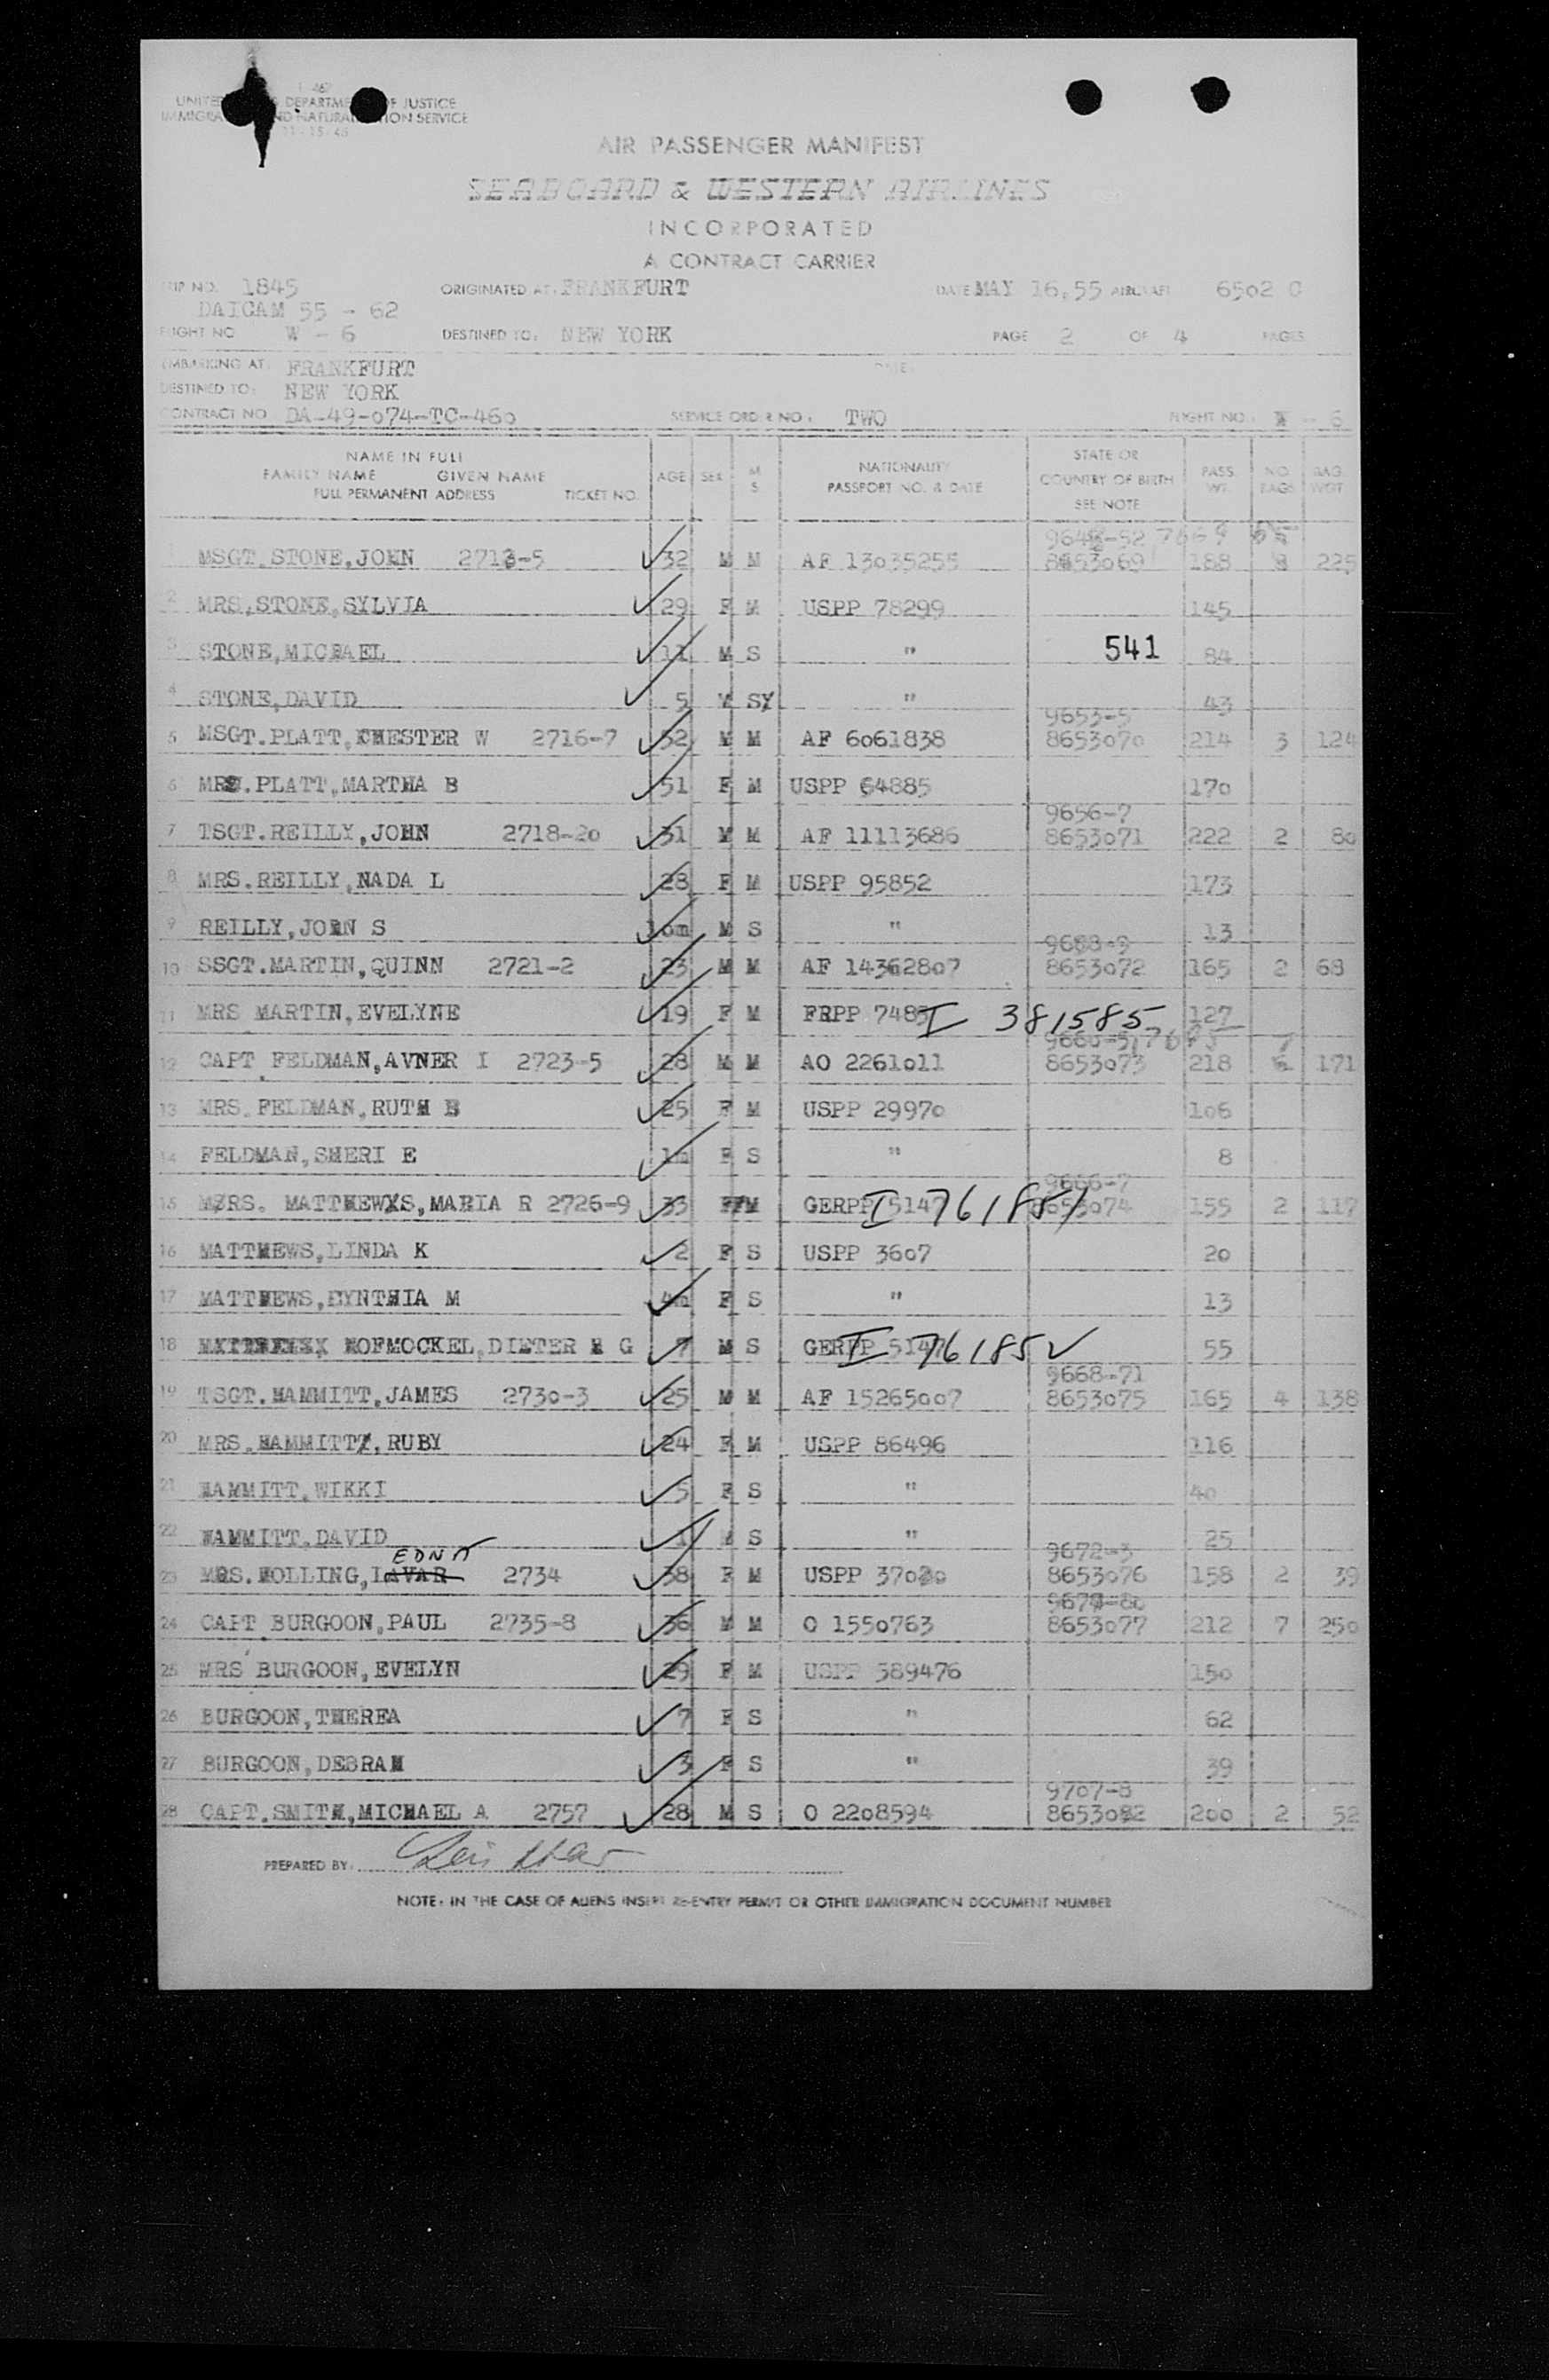 I-467
UNITED DEPARTMENT OF JUSTICE
IMMIGRATION AND NATURALIZATION SERVICE
11-15-45
AIR PASSENGER MANIFEST
SEABOARD & WESTERN AIRLINES
INCORPORATED
A CONTRACT CARRIER
TRIP NO. 1845 ORIGINATED AT: FRANKFURT DATE MAY 16,55 AIRCRAFT 6502 C
DAICAM 55 - 62
FLIGHT NO W - 6 DESTINED TO: NEW YORK PAGE 2 OF 4 PAGES
EMBARKING AT: FRANKFURT DATE:
DESTINED TO: NEW YORK
CONTRACT NO DA-49-074-TC-460 SERVICE ORDER NO: TWO FLIGHT NO: W - 6
NAME IN FULL
FAMILY NAME GIVEN NAME
FULL PERMANENT ADDRESS TICKET NO.
AGE SEX M S
NATIONALITY
PASSPORT NO. & DATE
STATE OR
COUNTRY OF BIRTH
SEE NOTE
PASS WT. NO. BAGS BAG WGT
9648-52
1 MSGT.STONE,JOHN 2713-5 32 M M AF 13035255 8653069 188 8 225
2 MRS.STONE,SYLVIA 29 F M USPP 78299 145
3 STONE,MICHAEL 11 M S " 541 84
4 STONE,DAVID 5 M S " 43
9653-5
5 MSGT.PLATT,CHESTER W 2716-7 52 M M AF 6061838 8653070 214 3 124
6 MRS.PLATT,MARTHA B 51 F M USPP 64885 170
9656-7
7 TSGT.REILLY,JOHN 2718-20 31 M M AF 11113686 8653071 222 2 80
8 MRS.REILLY,NADA L 28 F M USPP 95852 173
9 REILLY,JOHN S 10m M S " 13
9658-9
10 SSGT.MARTIN,QUINN 2721-2 23 M M AF 14362807 8653072 165 2 68
11 MRS MARTIN,EVELYNE 19 F M FRPP 7483 I 381585 127
9660-5
12 CAPT FELDMAN,AVNER I 2723-5 28 M M AO 2261011 8653073 218 7 171
13 MRS.FELDMAN,RUTH B 25 F M USPP 29970 106
14 FELDMAN,SHERI E 1m F S " 8
9666-7
15 MRS. MATTHEWS,MARIA R 2726-9 33 F M GERPP 5147 I 761851 8653074 155 2 117
16 MATTHEWS,LINDA K 2 F S USPP 3607 20
17 MATTHEWS,CYNTHIA M 4m F S " 13
18 HOFMOCKEL,DIETER H G 7 M S GERPP 5147 I 76185 55
9668-71
19 TSGT.HAMMITT,JAMES 2730-3 25 M M AF 15265007 8653075 165 4 138
20 MRS.HAMMITT,RUBY 24 F M USPP 86496 116
21 HAMMITT.WIKKI 5 F S " 40
22 HAMMITT.DAVID 1 M S " 25
EDNA 9672-3
23 MRS.HOLLING,LAVAR 2734 38 F M USPP 37020 8653076 158 2 39
9674-80
24 CAPT BURGOON,PAUL 2735-8 36 M M O 1550763 8653077 212 7 250
25 MRS BURGOON,EVELYN 29 F M USPP 389476 150
26 BURGOON,THEREA 7 F S " 62
27 BURGOON,DEBRAH 3 F S " 39
9707-8
28 CAPT.SMITH,MICHAEL A 2757 28 M S O 2208594 8653082 200 2 52
PREPARED BY:
NOTE: IN THE CASE OF ALIENS INSERT RE-ENTRY PERMIT OR OTHER IMMIGRATION DOCUMENT NUMBER